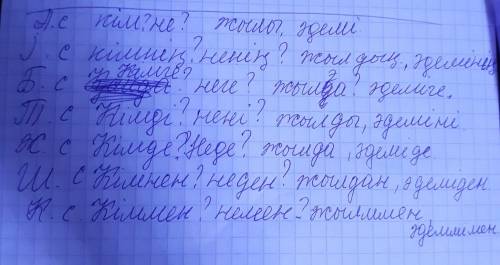 А.с кім? не? жылы, әдемі
І.с кімнің? ненің? жылдың, әдемінің
Б.с Кімге? неге? жылға? әдемиге.
Т.с Кімді? нені? жылды, әдеміні
Ж.с Кімде? Неде? жылда, әдеміде
Ш.с Кімнен? неден? жылдан, әдеміден
К.с. Кіммен? немен? жылммен,
әдемимен